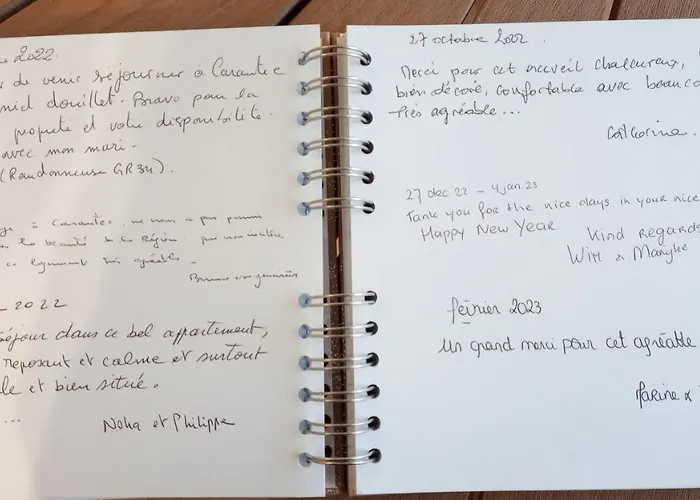 2022.
de venir séjourner à Carantec
nid douillet. Bravo pour la
propreté et votre disponibilité.
avec mon mari.
(Randonneuse GR34).
à Carantec, ne nous a pas permis
la beauté de la Région.
ce logement très agréable.
2022
séjour dans ce bel appartement,
reposant et calme et surtout
et bien situé.
...
Noha et Philippe
27 octobre 2022.
Merci pour cet accueil chaleureux,
bien décoré, confortable avec beauco
très agréable...
Catherine.
27 dec 22 - 4 jan. 23
Tank you for the nice days in your nice
Happy New Year.
Kind regards
Wim & Maryke
février 2023
Un grand merci pour cet agréable
Marine x